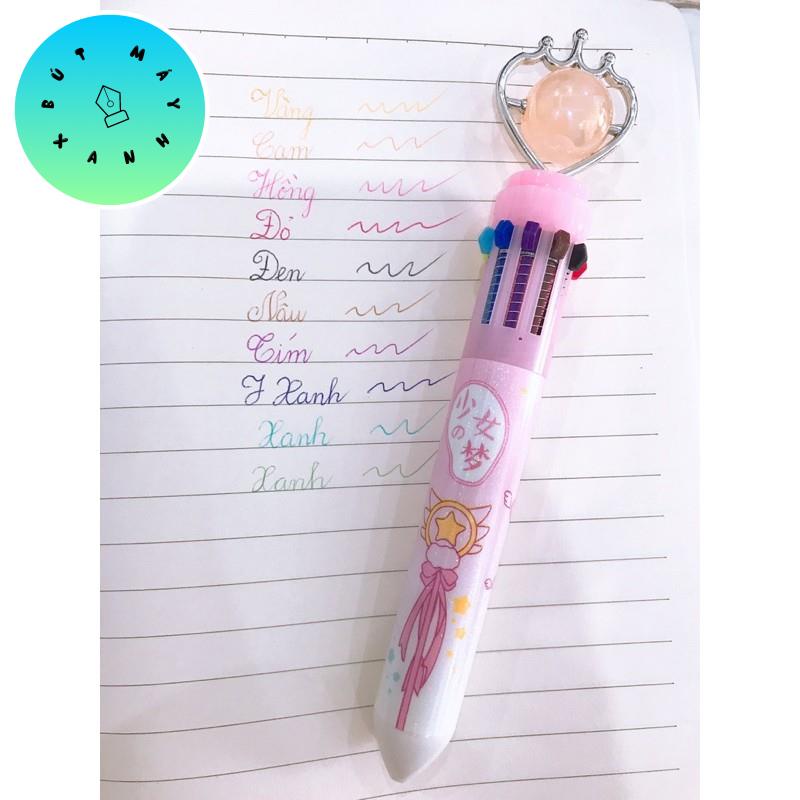 BÚT MÁY XANH
Vàng
Cam
Hồng
Đỏ
Đen
Nâu
Tím
J Xanh
Xanh
Xanh
少女
の梦